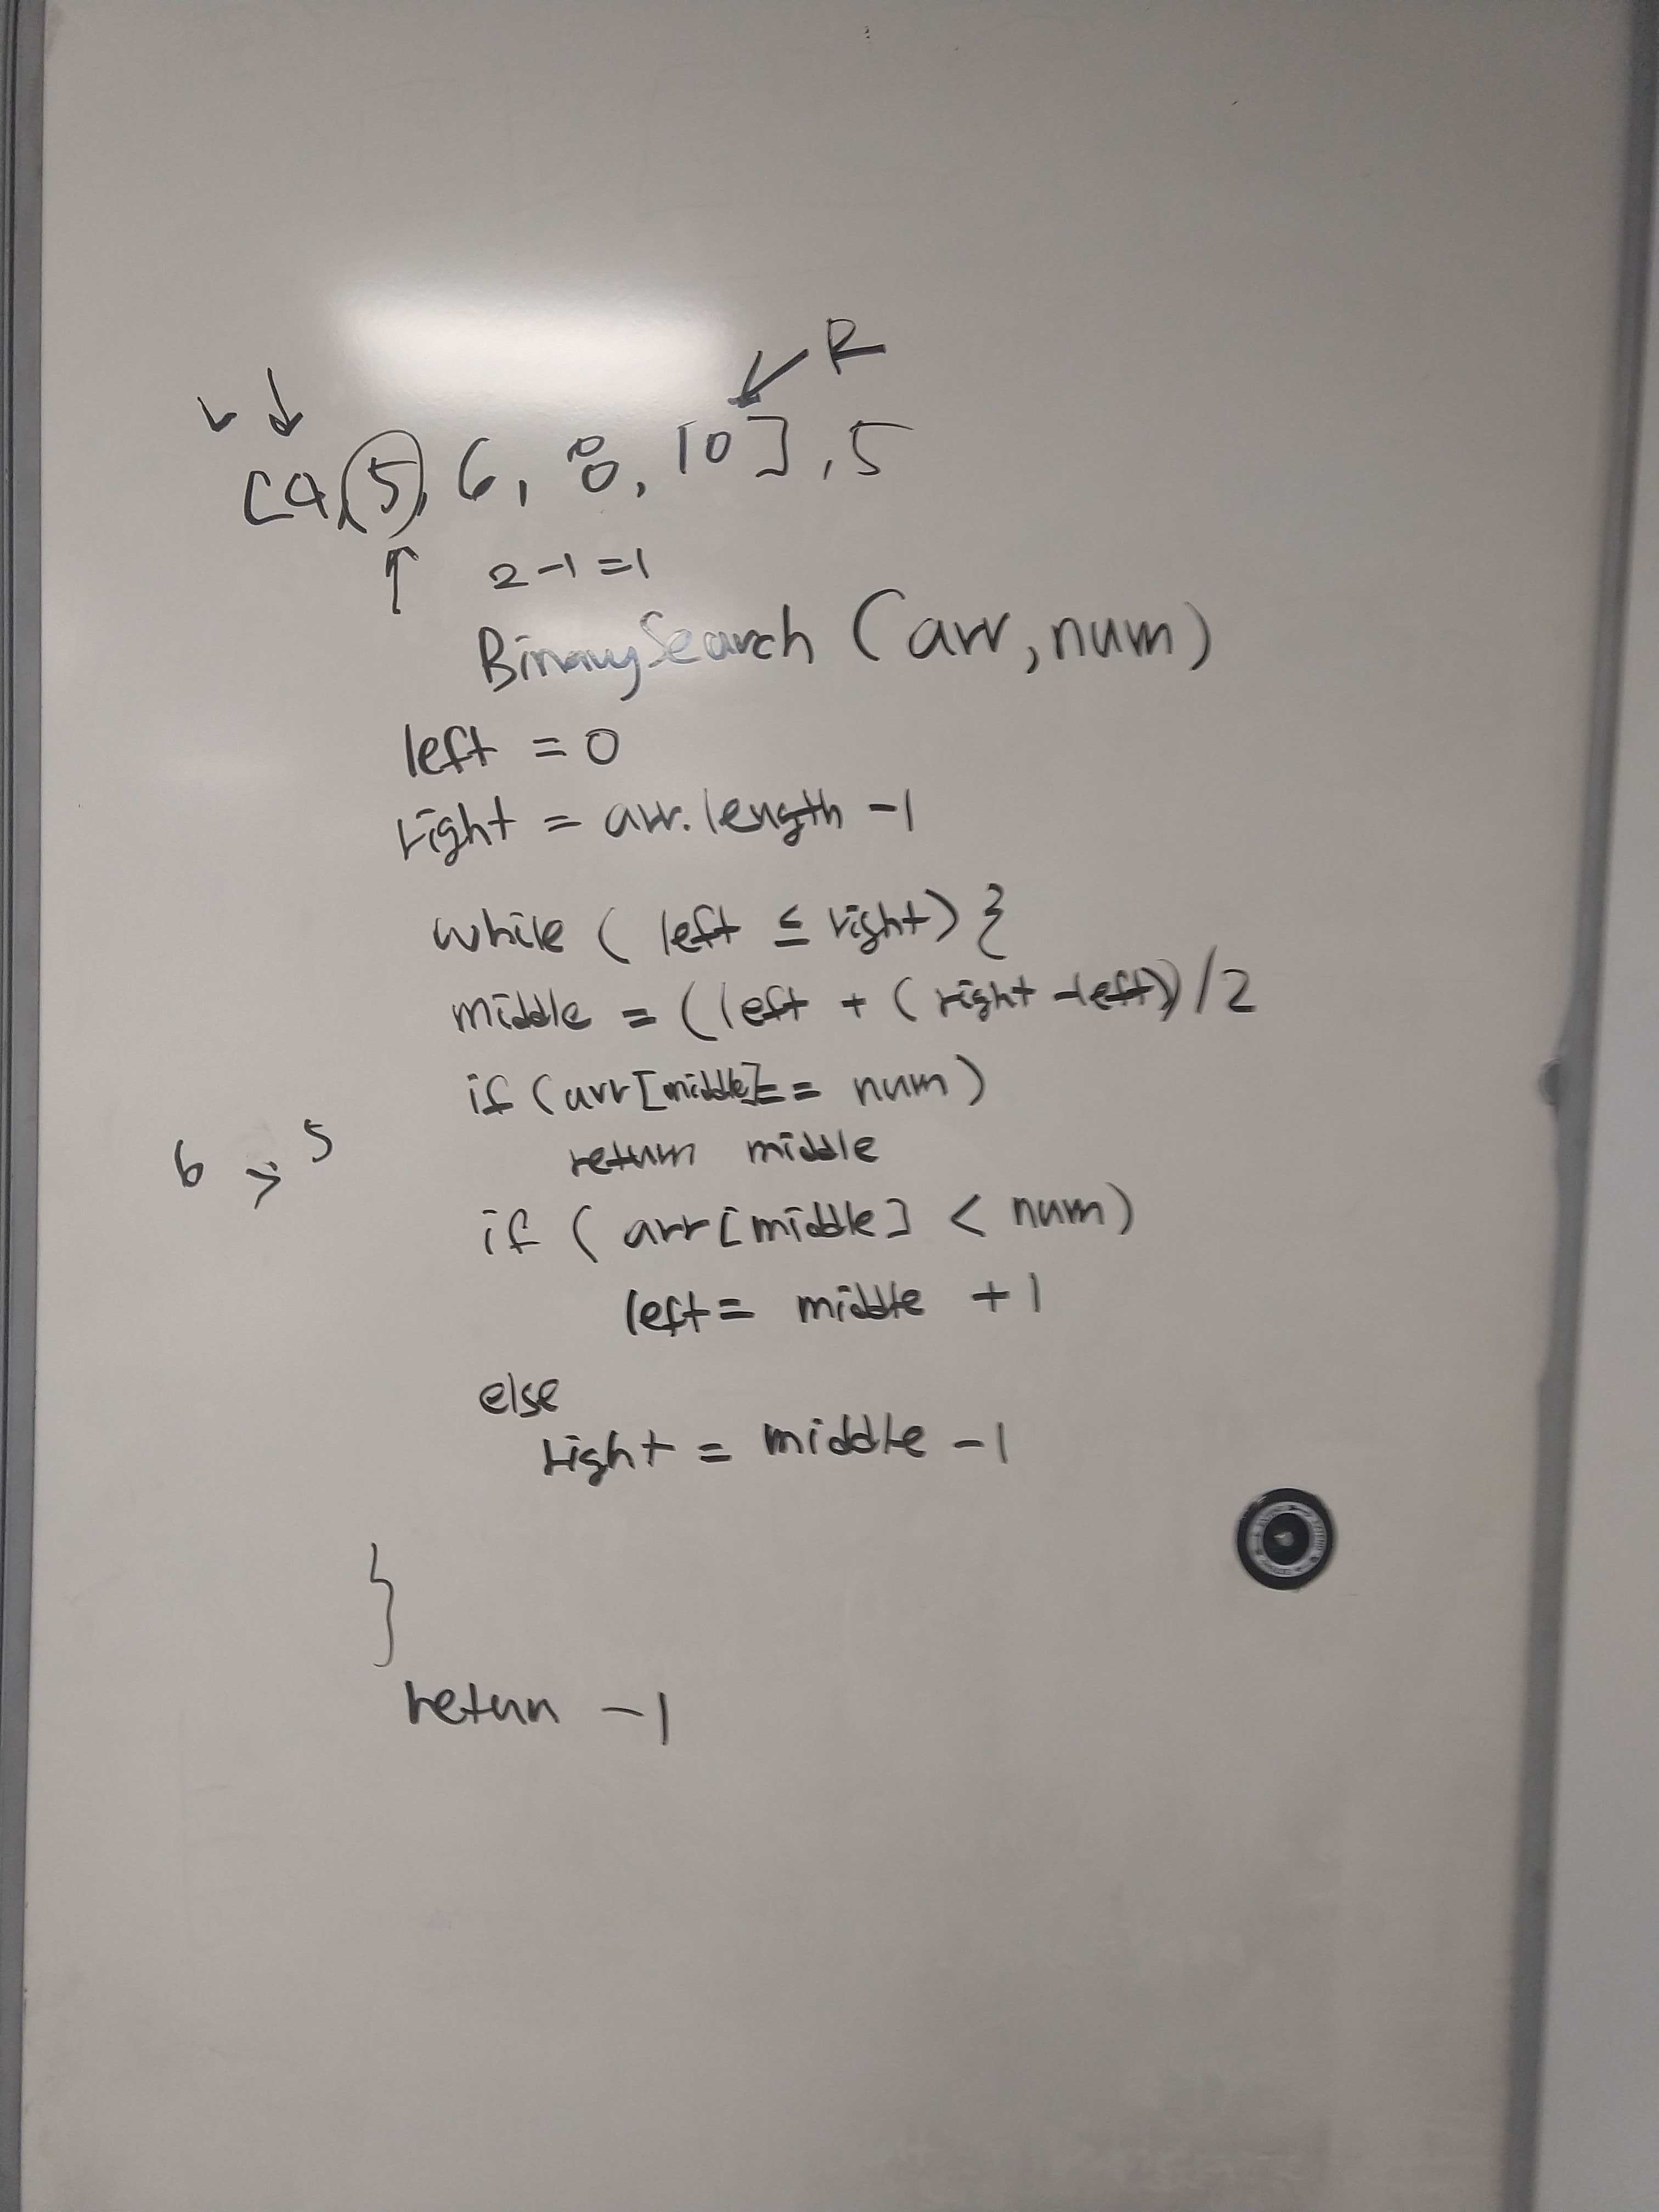 R
L
[4, 5, 6, 8, 10], 5
2-1=1
BinarySearch (arr, num)
left = 0
right = arr.length -1
while ( left ≤ right) {
middle = (left + (right -left))/2
if (arr[middle] == num)
return middle
6 > 5
if ( arr[middle] < num)
left = middle +1
else
right = middle -1
}
return -1